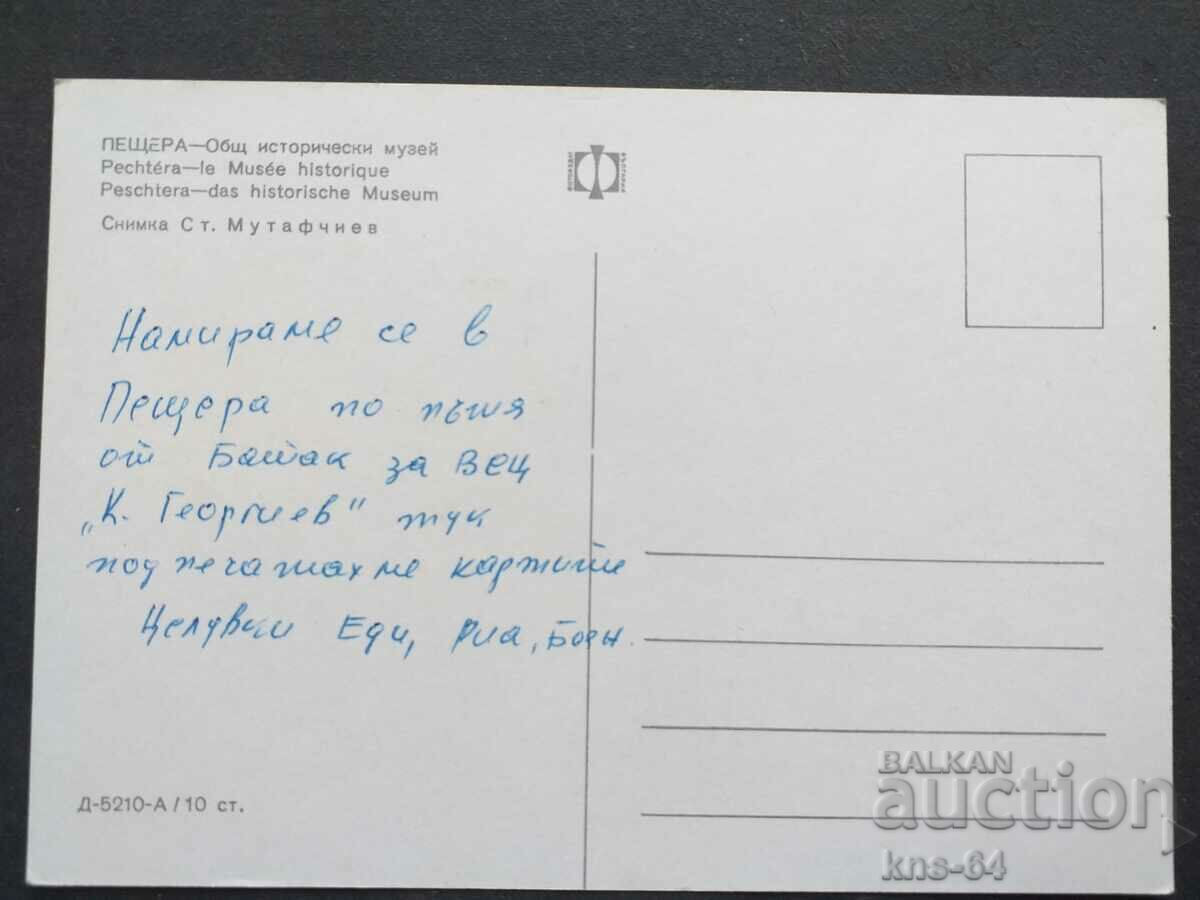 ПЕЩЕРА—Общ исторически музей
Pechtéra—le Musée historique
Peschtera—das historische Museum
Снимка Ст. Мутафчиев
ФОТОИЗДАТ
БЪЛГАРИЯ
Намираме се в
Пещера по пътя
от Батак за ВЕЦ
„К. Георгиев" тук
подпечатахме картите
Целувки Еди, Риа,
Д-5210-А/10 ст.
BALKAN
auction
kns-64